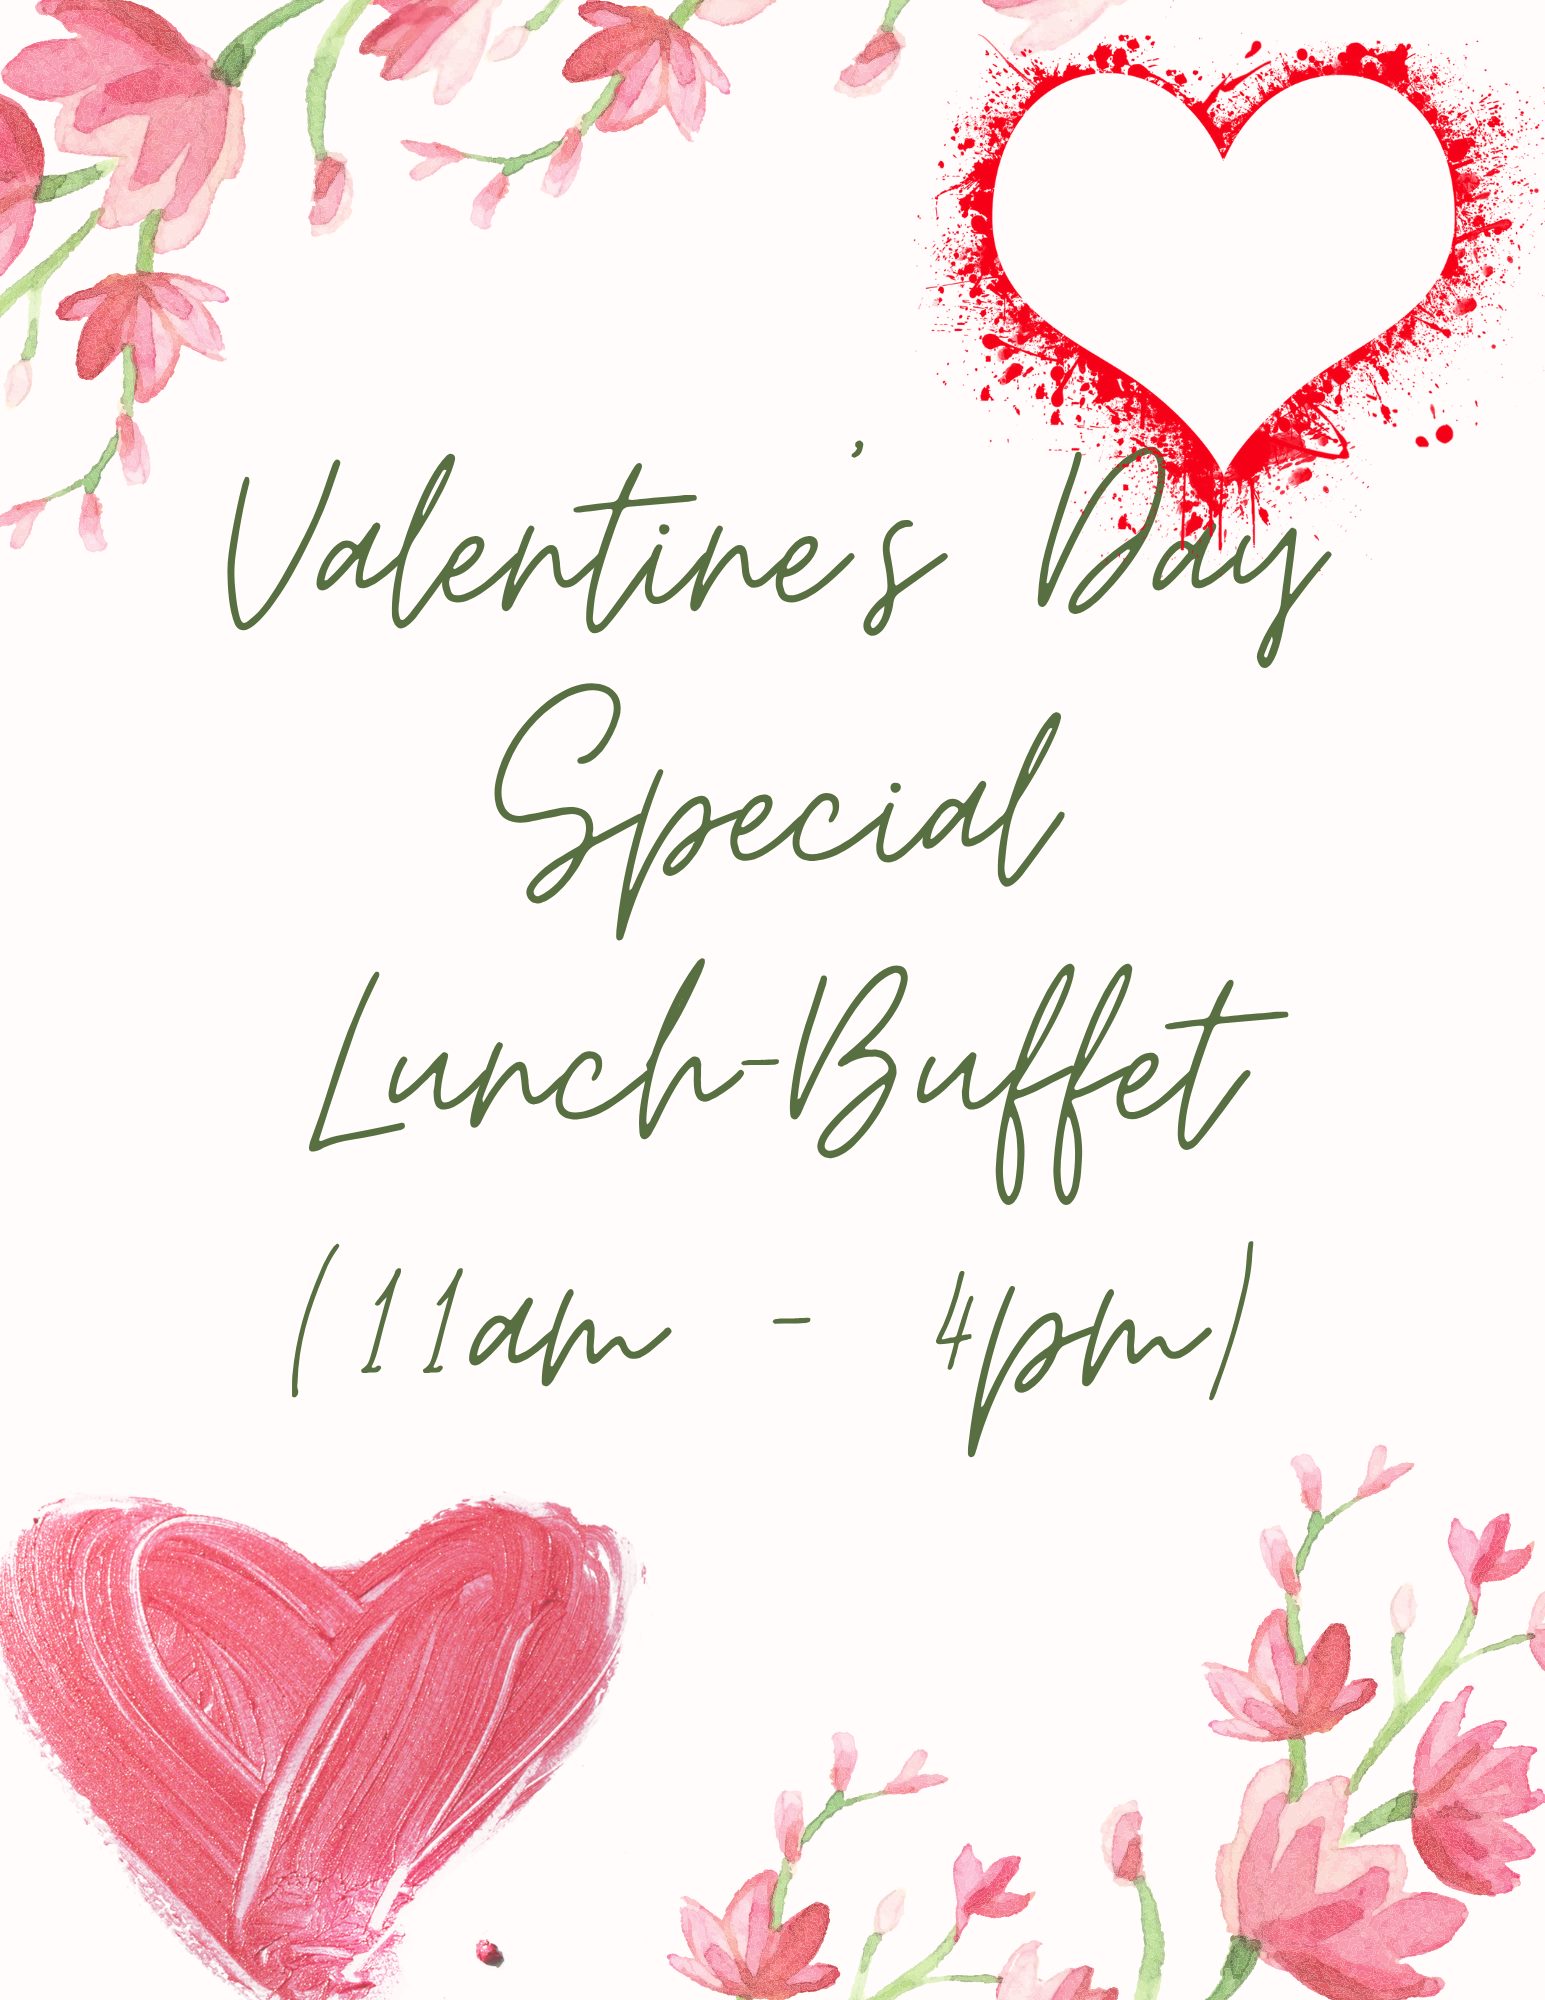 Valentine's Day
Special
Lunch-Buffet
(11am - 4pm)